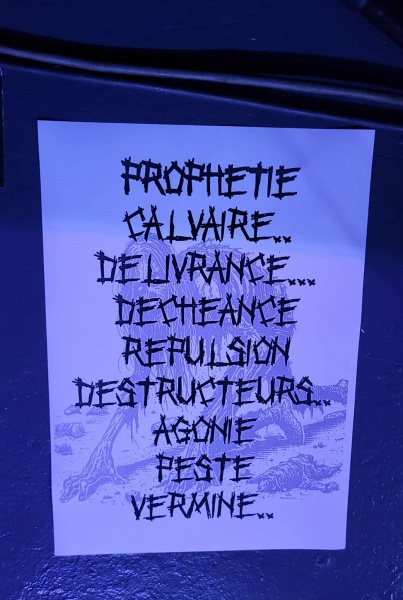 PROPHETIE
CALVAIRE..
DELIVRANCE...
DECHEANCE
REPULSION
DESTRUCTEURS..
AGONIE
PESTE
VERMINE..